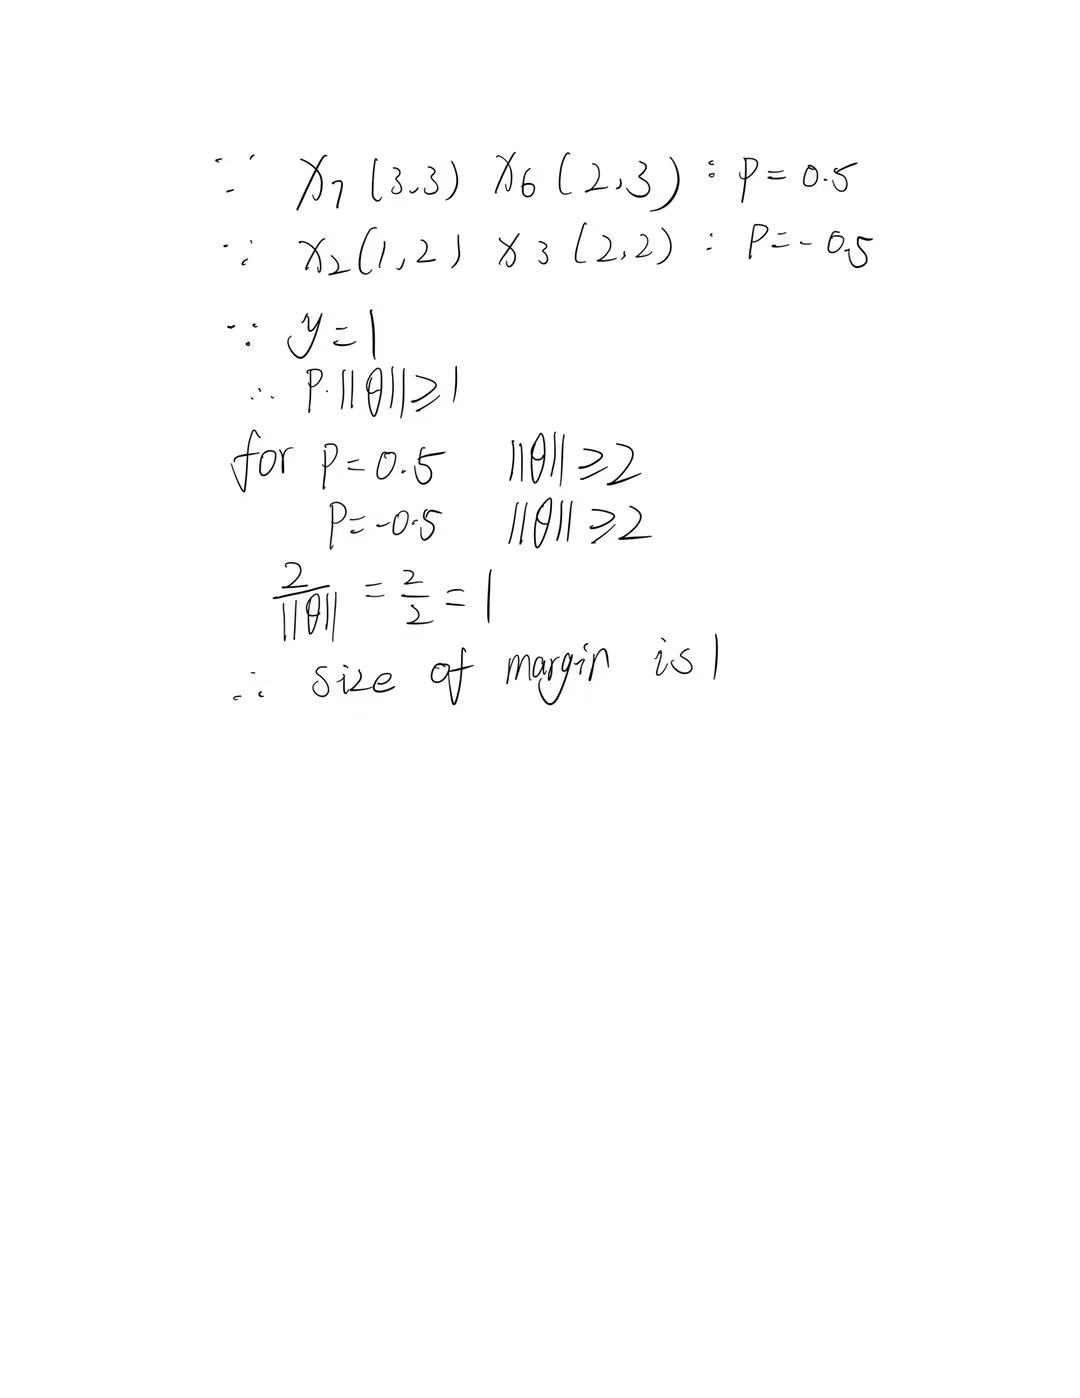 ∵ x₇(3,3) x₆(2,3) : P=0.5
∵ x₂(1,2) x₃(2,2) : P=-0.5
∵ y=1
∴ P·||θ||⩾1
for P=0.5 ||θ||⩾2
P=-0.5 ||θ||⩾2
2/||θ|| = 2/2 = 1
∴ size of margin is 1